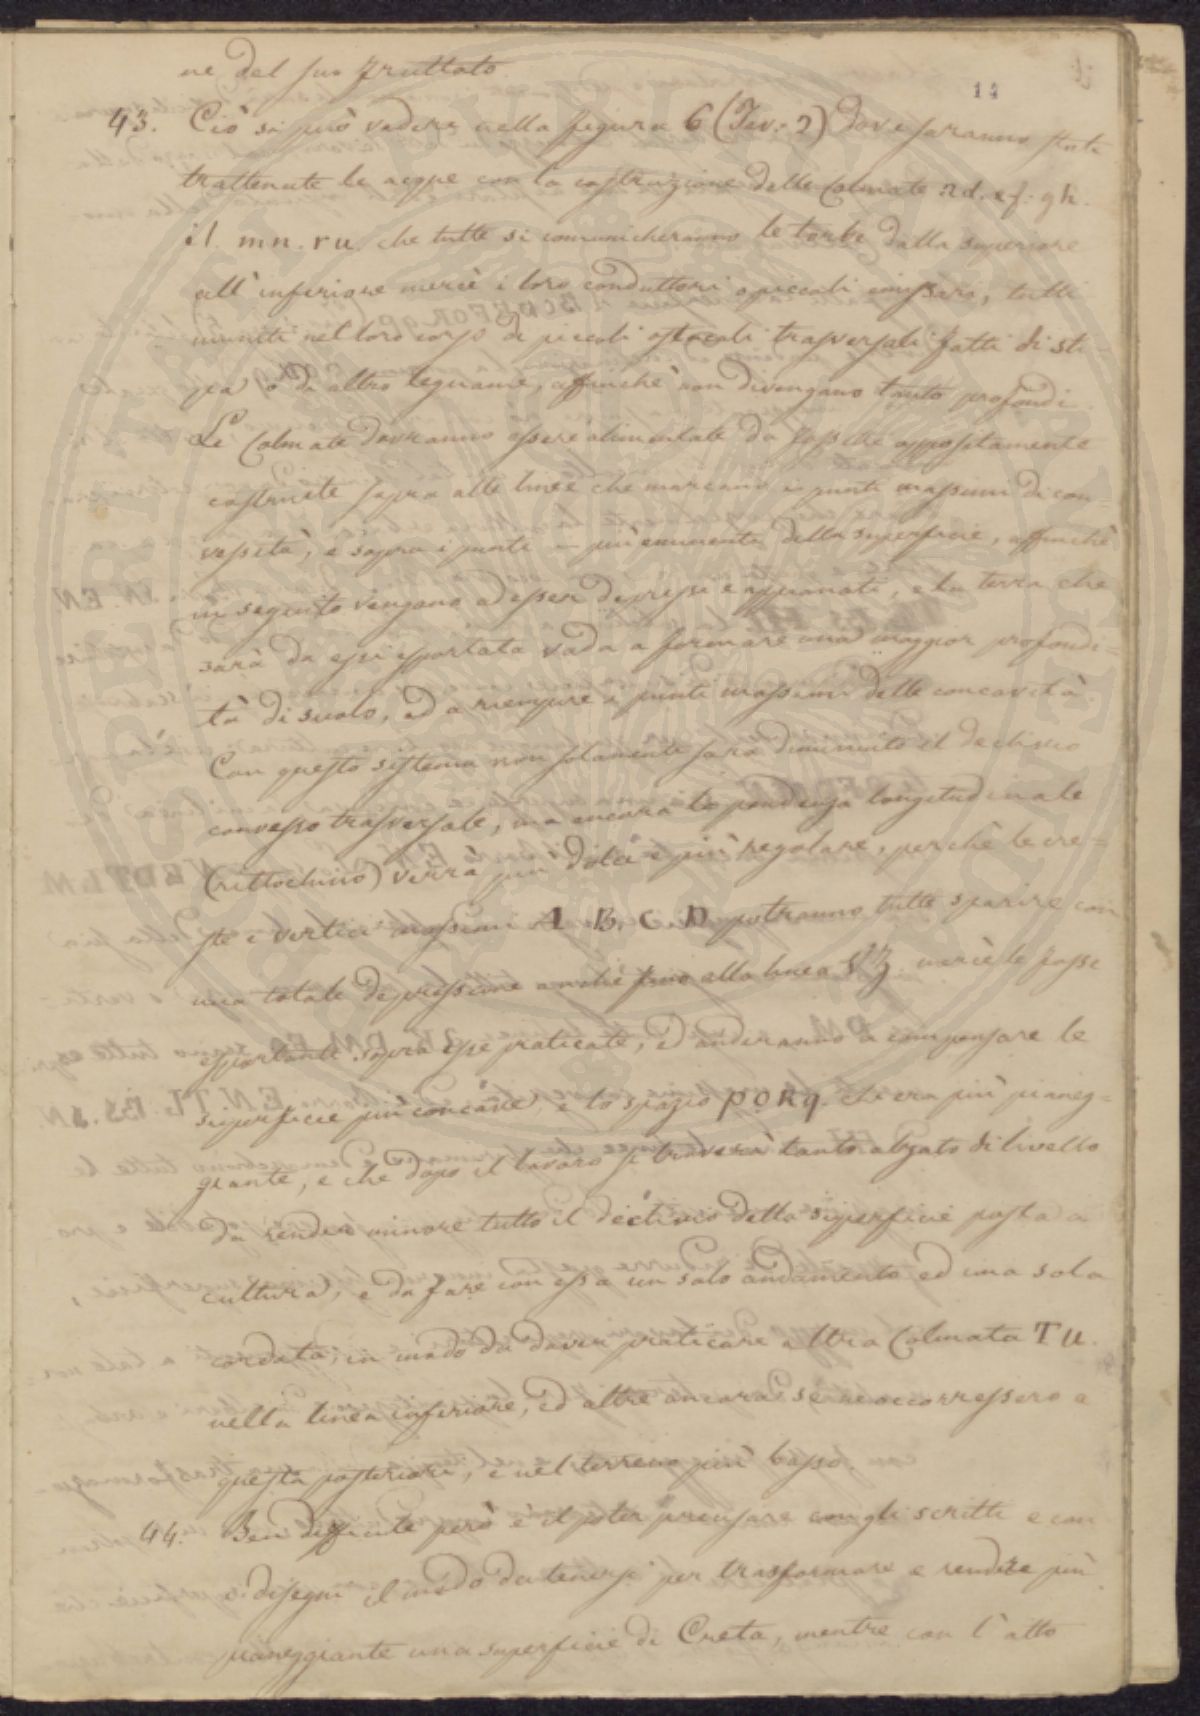 14
ne del suo fruttato.
43. Ciò si può vedere nella figura 6 (Tav: 2) dove saranno state
trattenute le acque con la costruzione delle Colmate ad. ef. gh.
il. mn. ru. che tutte si comunicheranno le torbe dalla superiore
all'inferiore mercè i loro conduttori o piccoli emissari, tutti
muniti nel loro corso di piccoli ostacoli trasversali fatti di sti-
pa o di altro legname, affinchè non divengano tanto profondi.
Le Colmate dovranno essere alimentate da fossette appositamente
costruite sopra alle linee che marcano i punti massimi di con-
vessità, e sopra i punti più eminenti della superficie, affinchè
in seguito vengano ad esser depressi e appianati, e la terra che
sarà da essi esportata vada a formare una maggior profondi=
tà di suolo, ed a riempire i punti massimi delle concavità.
Con questo sistema non solamente sarà diminuito il declivio
convesso trasversale, ma ancora la pendenza longitudinale
(rittochino) verrà più dolce e più regolare, perchè le cre=
ste i vertici massimi A B. C. D potranno tutte sparire con
una totale depressione anche fino alla linea mercè le fosse
esportanti sopra esse praticate, ed anderanno a compensare le
superficie più concave, e lo spazio PORq. che era più pianeg=
giante, e che dopo il lavoro si troverà tanto alzato di livello
da render minore tutto il declivio della superficie posta a
cultura, e da fare con essa un solo andamento ed una sola
cordata, in modo da dover praticare altra Colmata TU.
nella linea inferiore, ed altre ancora se ne occorressero a
questa posteriori, e nel terreno più basso.
44. Ben difficile però è il poter precisare con gli scritti e con
i disegni il modo da tenersi per trasformare e rendere più
pianeggiante una superficie di Creta, mentre con l'atto